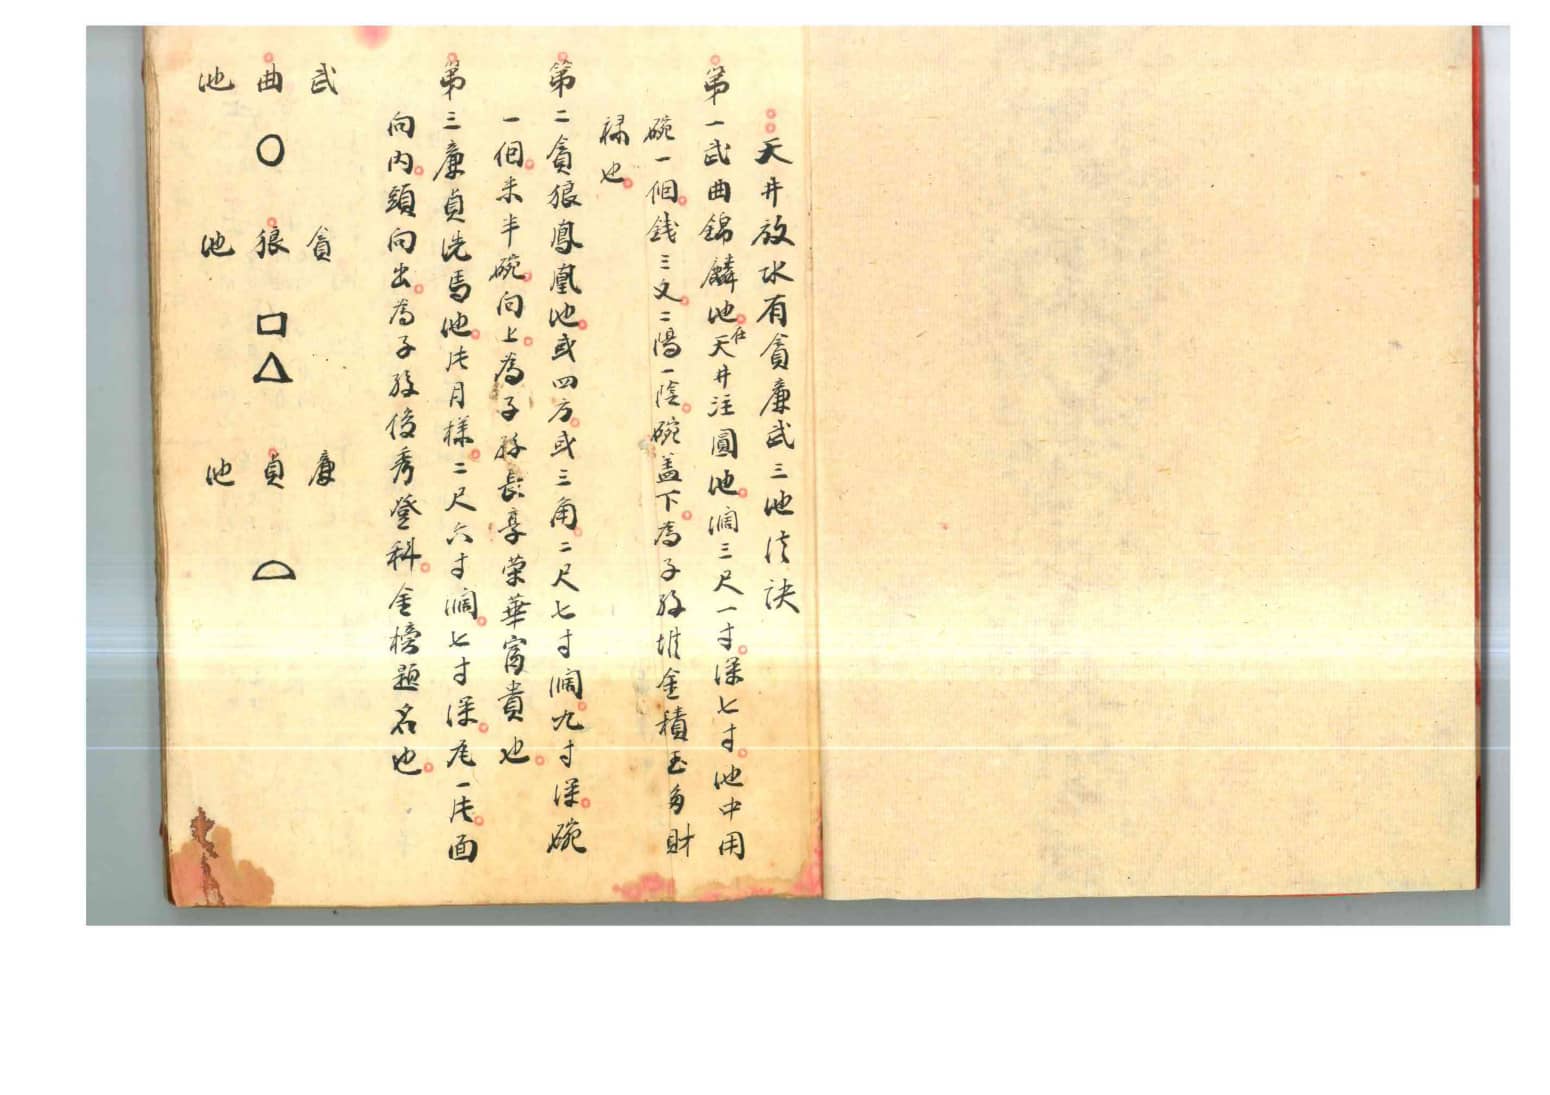 天井放水有貪廉武三池法訣
第一武曲錦麟池在天井注圓池濶三尺一寸深七寸池中用
碗一個錢三文二陽一陰碗盖下為子孫堆金積玉多財
祿也
第二貪狼鳳凰池或四方或三角二尺七寸濶九寸深碗
一個米半碗向上為子孫長享榮華富貴也
第三廉貞洗馬池月樣二尺六寸濶七寸深尾一面
向內頭向出為子孫俊秀登科金榜題名也
武曲池
貪狼池
廉貞池